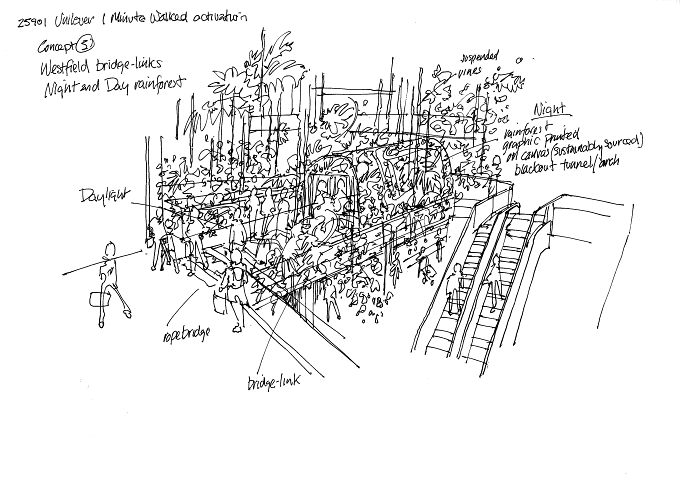 25901 Unilever 1 Minute Walked activation
Concept 5
Westfield bridge-links
Night and Day rainforest
suspended
vines
Night
rainforest
graphic printed
on canvas (sustainably sourced)
blackout tunnel/arch
Daylight
ropebridge
bridge-link